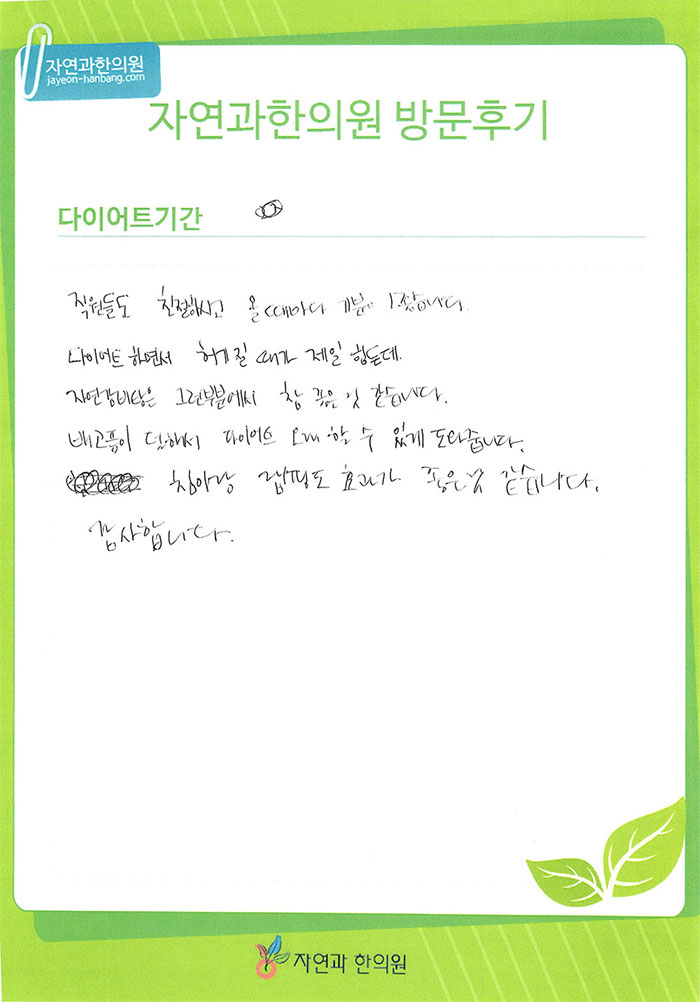 자연과한의원
jayeon-hanbang.com
자연과한의원 방문후기
다이어트기간
직원들도 친절하시고 올때마다 기분이 좋습니다.
다이어트 하면서 허기질 때가 제일 힘든데.
자연감비탕은 그런부분에서 참 좋은 것 같습니다.
배고픔이 덜해서 다이어트 오래 할 수 있게 도와줍니다.
침이랑 랩핑도 효과가 좋은것 같습니다.
감사합니다.
자연과 한의원